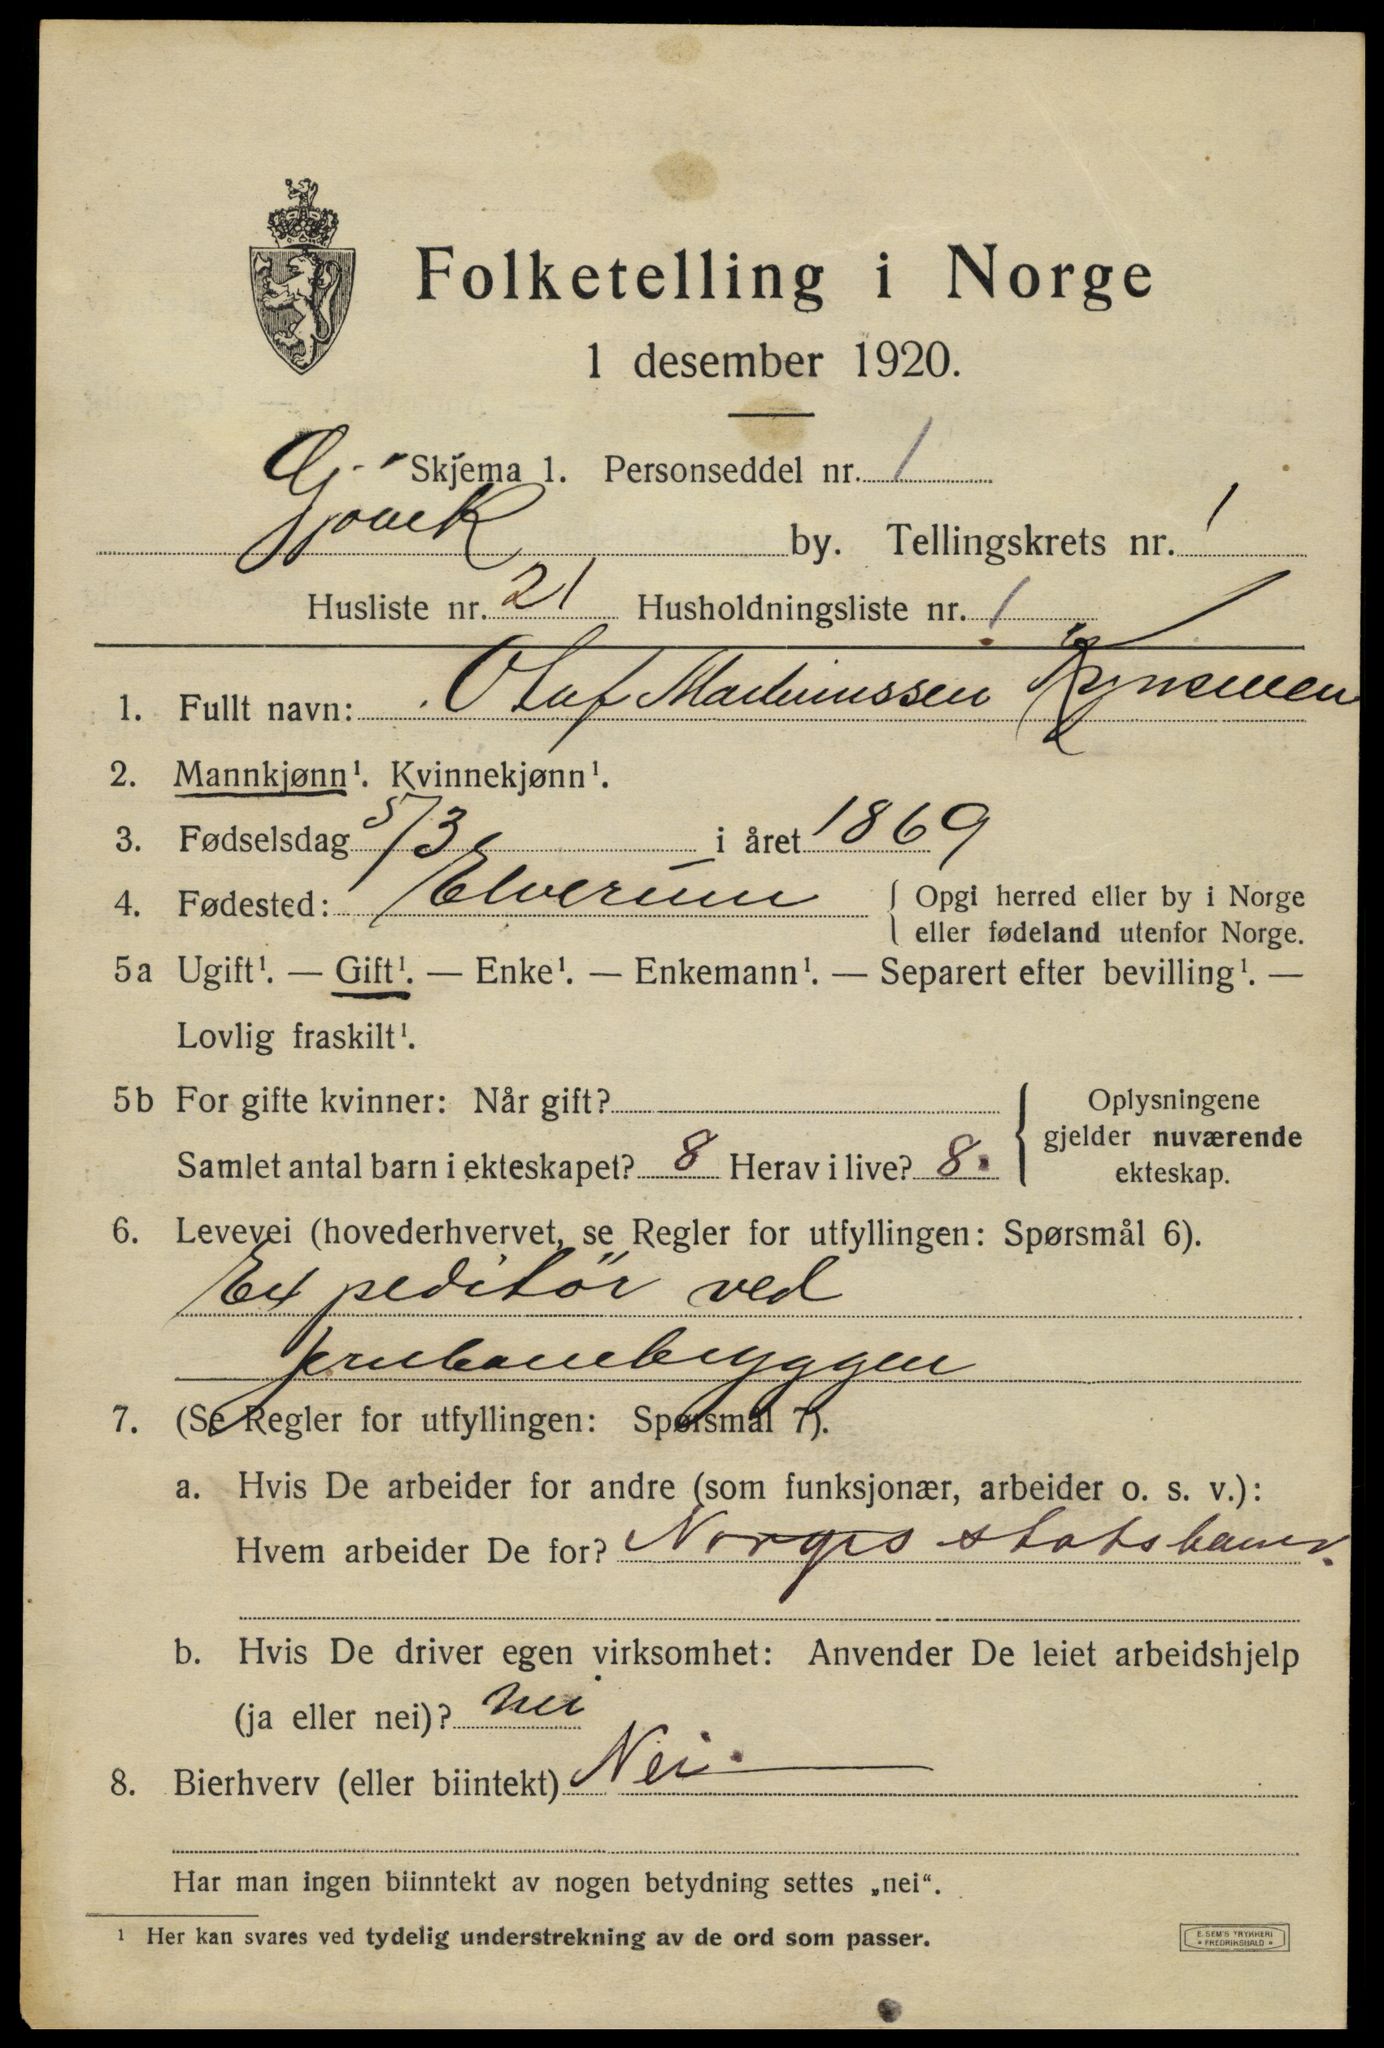 Folketelling i Norge
1 desember 1920.
Skjema 1. Personseddel nr. 1
Gjøvik by. Tellingskrets nr. 1
Husliste nr. 21 Husholdningsliste nr. 1
1. Fullt navn: Olaf Martinussen
2. Mannkjønn¹. Kvinnekjønn¹.
3. Fødselsdag 5/3 i året 1869
4. Fødested: Elverum { Opgi herred eller by i Norge
eller fødeland utenfor Norge.
5a Ugift¹. — Gift¹. — Enke¹. — Enkemann¹. — Separert efter bevilling¹. —
Lovlig fraskilt¹.
5b For gifte kvinner: Når gift?
Samlet antal barn i ekteskapet? 8 Herav i live? 8.
{ Oplysningene
gjelder nuværende
ekteskap.
6. Levevei (hovederhvervet, se Regler for utfyllingen: Spørsmål 6).
Expeditör ved
jernbanebryggen
7. (Se Regler for utfyllingen: Spørsmål 7).
a. Hvis De arbeider for andre (som funksjonær, arbeider o. s. v.):
Hvem arbeider De for? Norges statsbaner.
b. Hvis De driver egen virksomhet: Anvender De leiet arbeidshjelp
(ja eller nei)? nei
8. Bierhverv (eller biintekt) Nei.
Har man ingen biinntekt av nogen betydning settes „nei“.
¹ Her kan svares ved tydelig understrekning av de ord som passer.
E. SEM'S TRYKKERI
* FREDRIKSHALD *